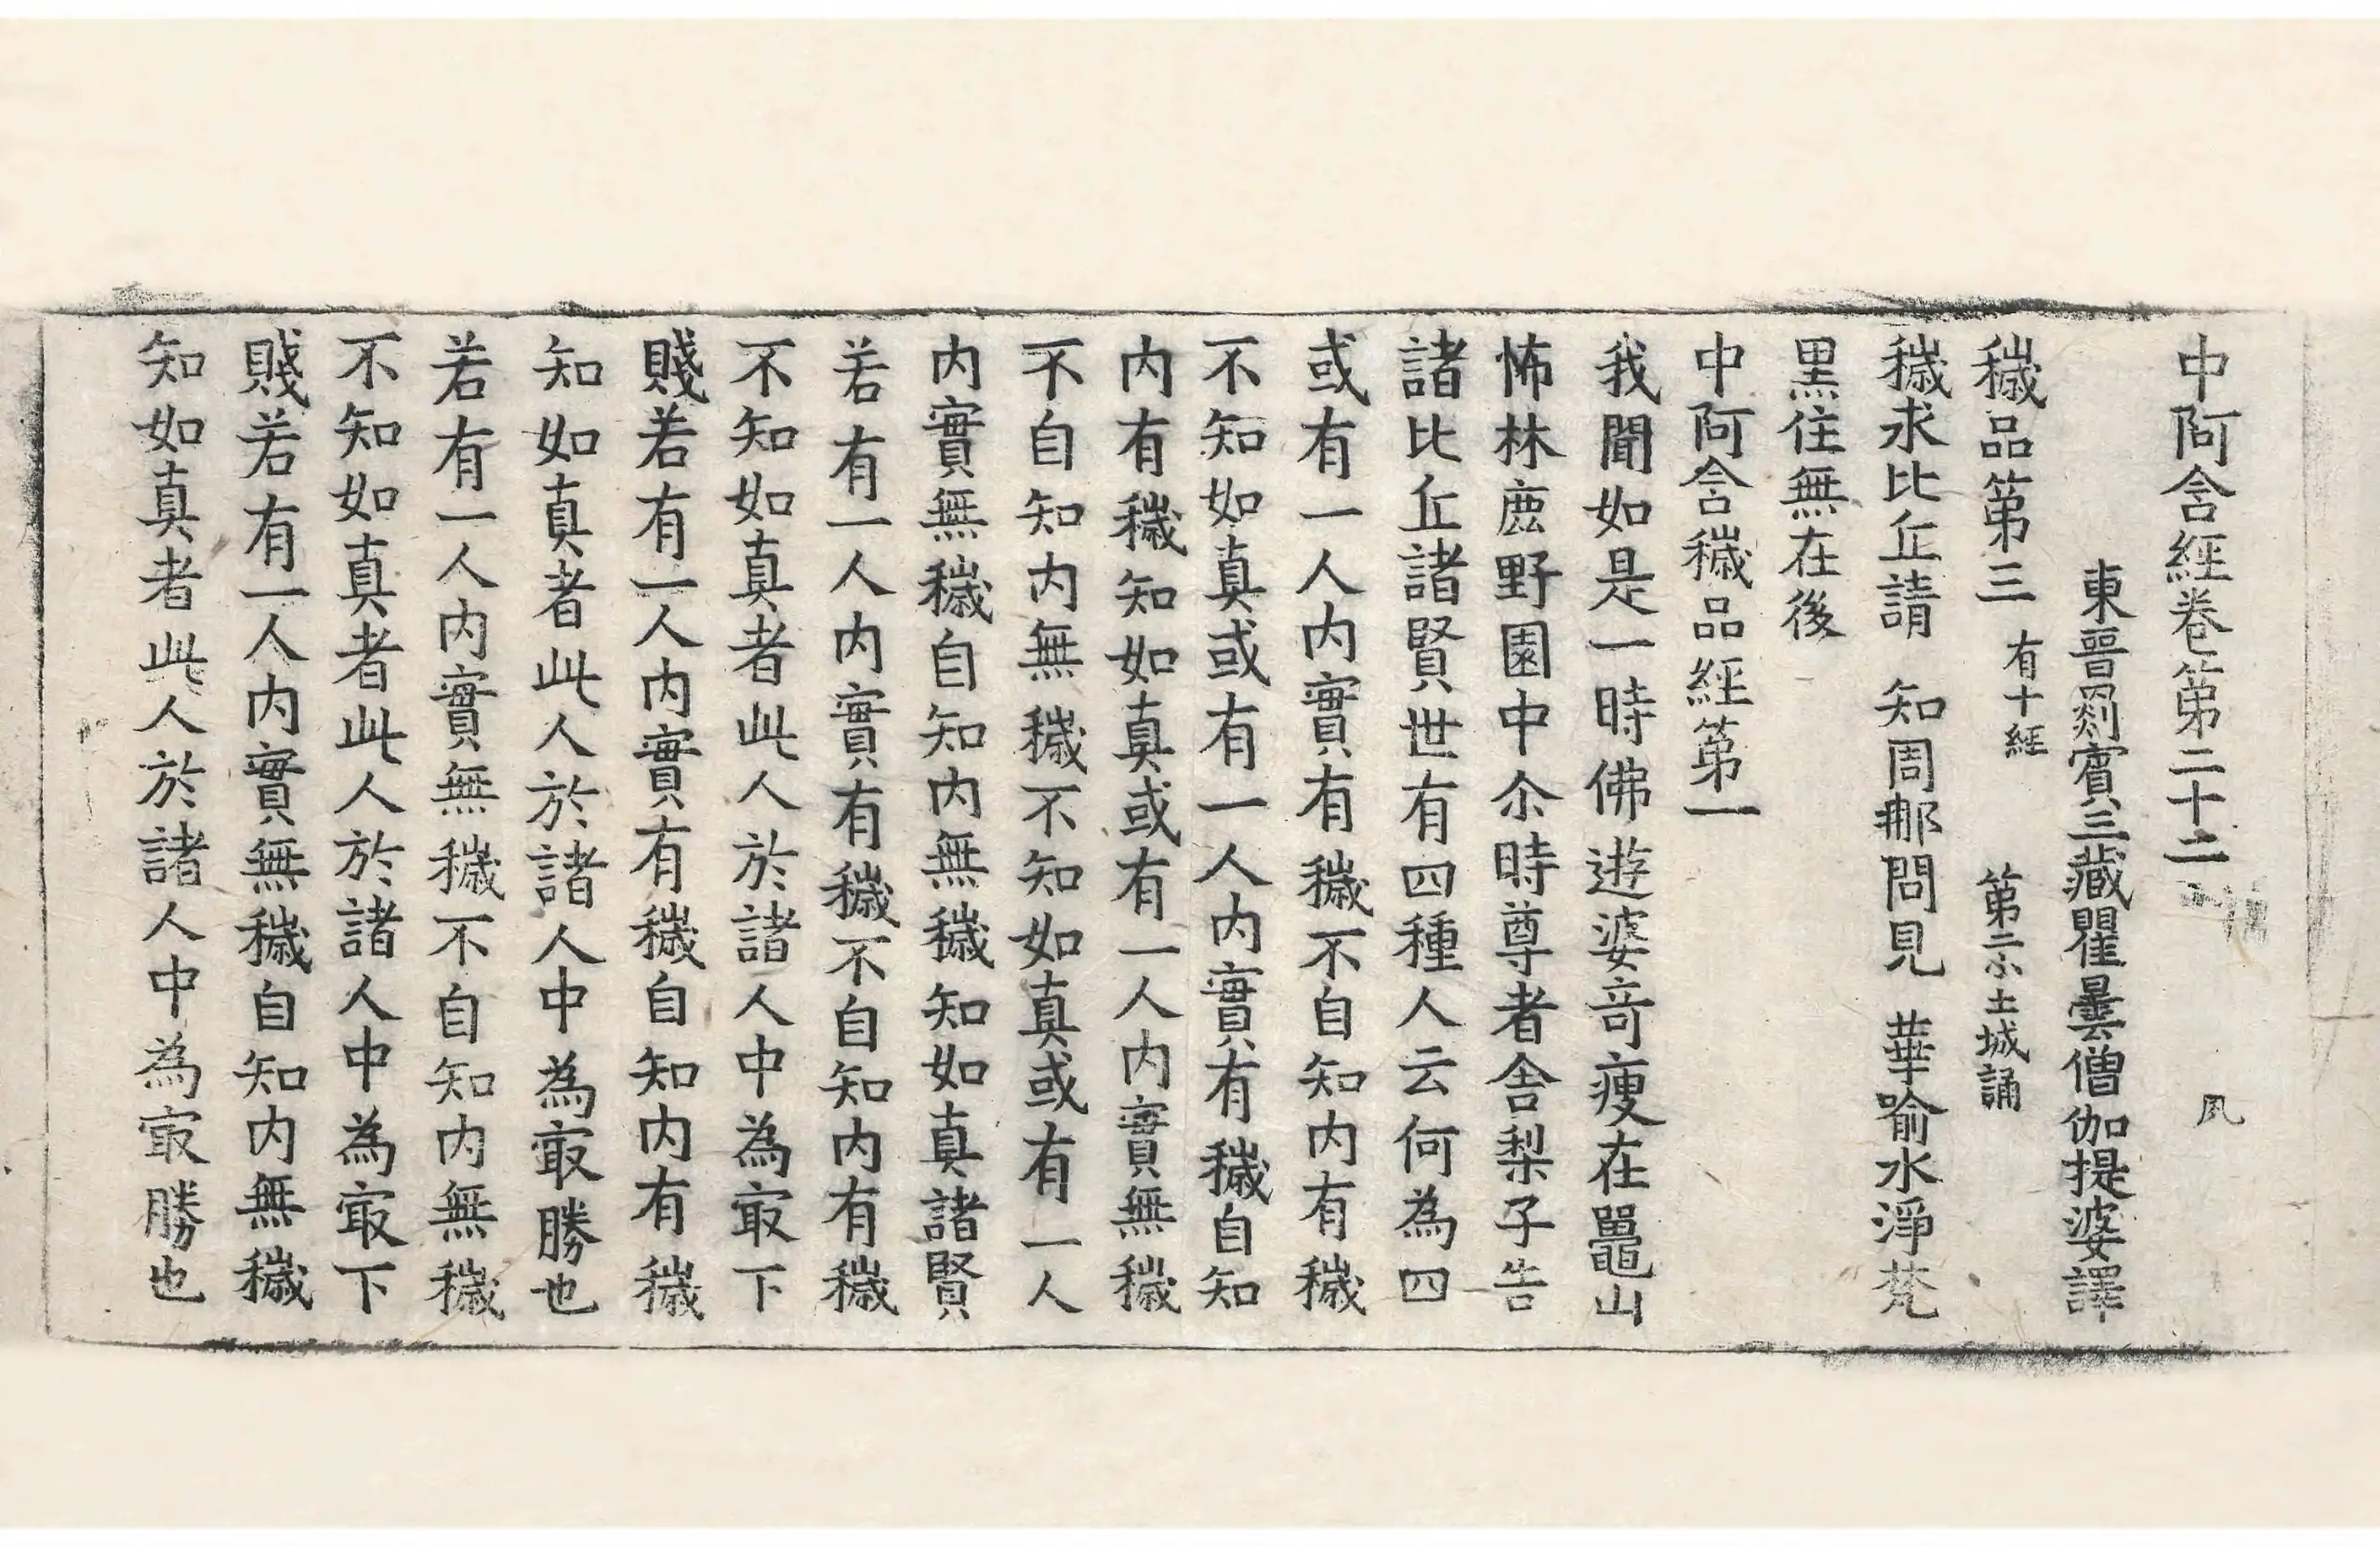 中阿含經卷第二十二 夙
東晉罽賓三藏瞿曇僧伽提婆譯
穢品第三 有十經 第二小土城誦
穢求比丘請 知周那問見 華喻水淨梵
黑住無在後
中阿含穢品經第一
我聞如是一時佛遊婆奇瘦在鼉山
怖林鹿野園中尒時尊者舍梨子告
諸比丘諸賢世有四種人云何為四
或有一人内實有穢不自知内有穢
不知如真或有一人内實有穢自知
内有穢知如真或有一人内實無穢
不自知内無穢不知如真或有一人
内實無穢自知内無穢知如真諸賢
若有一人内實有穢不自知内有穢
不知如真者此人於諸人中為㝡下
賤若有一人内實有穢自知内有穢
知如真者此人於諸人中為㝡勝也
若有一人内實無穢不自知内無穢
不知如真者此人於諸人中為㝡下
賤若有一人内實無穢自知内無穢
知如真者此人於諸人中為㝡勝也